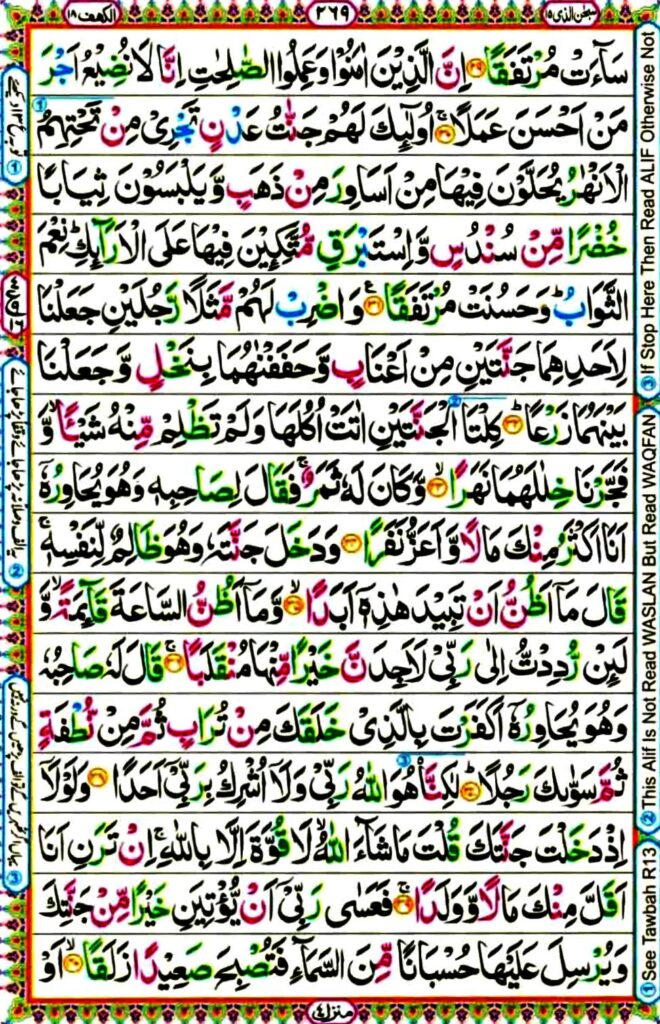 الکهف ۱۸
۳۶۹
سبحٰن الذی ۱۵
سَآءَتْ مُرْتَفَقًا ۲۹ اِنَّ الَّذِیْنَ اٰمَنُوْا وَعَمِلُوا الصّٰلِحٰتِ اِنَّا لَا نُضِیْعُ اَجْرَ
مَنْ اَحْسَنَ عَمَلًا ۚ ۳۰ اُولٰٓئِكَ لَهُمْ جَنّٰتُ عَدْنٍ تَجْرِیْ مِنْ تَحْتِهِمُ
الْاَنْهٰرُ یُحَلَّوْنَ فِیْهَا مِنْ اَسَاوِرَ مِنْ ذَهَبٍ وَّیَلْبَسُوْنَ ثِیَابًا
خُضْرًا مِّنْ سُنْدُسٍ وَّاِسْتَبْرَقٍ مُّتَّكِـِٕیْنَ فِیْهَا عَلَی الْاَرَآىِٕكِ ؕ نِعْمَ
الثَّوَابُ ؕ وَحَسُنَتْ مُرْتَفَقًا ۳۱ ۧ وَاضْرِبْ لَهُمْ مَّثَلًا رَّجُلَیْنِ جَعَلْنَا
لِاَحَدِهِمَا جَنَّتَیْنِ مِنْ اَعْنَابٍ وَّحَفَفْنٰهُمَا بِنَخْلٍ وَّجَعَلْنَا
بَیْنَهُمَا زَرْعًا ؕ ۳۲ كِلْتَا الْجَنَّتَیْنِ اٰتَتْ اُكُلَهَا وَلَمْ تَظْلِمْ مِّنْهُ شَیْـًٔا ۙ وَّ
فَجَّرْنَا خِلٰلَهُمَا نَهَرًا ۙ ۳۳ وَّكَانَ لَهٗ ثَمَرٌ ۚ فَقَالَ لِصَاحِبِهٖ وَهُوَ یُحَاوِرُهٗۤ
اَنَا اَكْثَرُ مِنْكَ مَالًا وَّاَعَزُّ نَفَرًا ۳۴ وَدَخَلَ جَنَّتَهٗ وَهُوَ ظَالِمٌ لِّنَفْسِهٖ ۚ
قَالَ مَاۤ اَظُنُّ اَنْ تَبِیْدَ هٰذِهٖۤ اَبَدًا ۙ ۳۵ وَّمَاۤ اَظُنُّ السَّاعَةَ قَآىِٕمَةً ۙ وَّ
لَىِٕنْ رُّدِدْتُّ اِلٰی رَبِّیْ لَاَجِدَنَّ خَیْرًا مِّنْهَا مُنْقَلَبًا ۚ ۳۶ قَالَ لَهٗ صَاحِبُهٗ
وَهُوَ یُحَاوِرُهٗۤ اَكَفَرْتَ بِالَّذِیْ خَلَقَكَ مِنْ تُرَابٍ ثُمَّ مِنْ نُّطْفَةٍ
ثُمَّ سَوّٰىكَ رَجُلًا ؕ ۳۷ لٰكِنَّا۠ هُوَ اللّٰهُ رَبِّیْ وَلَاۤ اُشْرِكُ بِرَبِّیْۤ اَحَدًا ۳۸ وَلَوْلَاۤ
اِذْ دَخَلْتَ جَنَّتَكَ قُلْتَ مَا شَآءَ اللّٰهُ ۙ لَا قُوَّةَ اِلَّا بِاللّٰهِ ۚ اِنْ تَرَنِ اَنَا
اَقَلَّ مِنْكَ مَالًا وَّوَلَدًا ۚ ۳۹ فَعَسٰی رَبِّیْۤ اَنْ یُّؤْتِیَنِ خَیْرًا مِّنْ جَنَّتِكَ
وَیُرْسِلَ عَلَیْهَا حُسْبَانًا مِّنَ السَّمَآءِ فَتُصْبِحَ صَعِیْدًا زَلَقًا ۙ ۴۰ اَوْ
منزل ٤
① See Tawbah R13
② This Alif Is Not Read WASLAN But Read WAQFAN
③ If Stop Here Then Read ALIF Otherwise Not